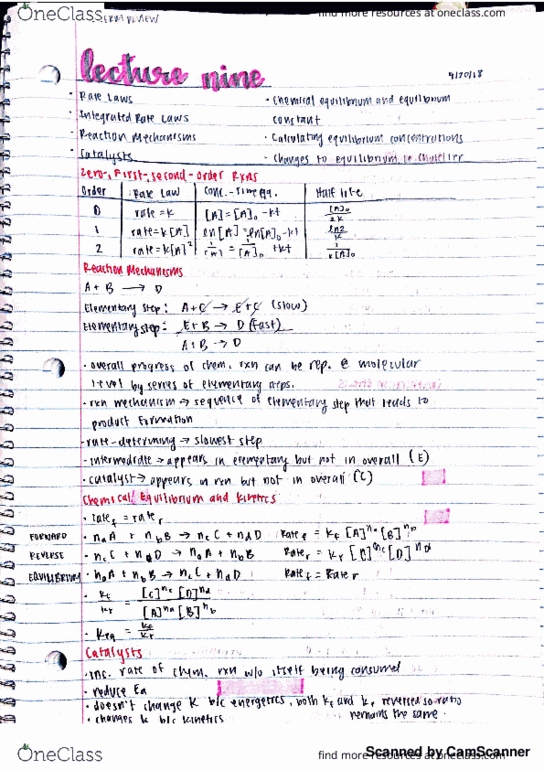 OneClass
find more resources at oneclass.com
REVIEW
lecture nine
9/20/18
· Rate Laws
· Chemical equilibrium and equilibrium
· Integrated Rate Laws
constant
· Reaction Mechanisms
· Calculating equilibrium concentrations
· Catalysts
· Changes to equilibrium
Zero-, First-, second-Order Rxns
Order Rate Law Conc.-Time Eq. Half life
0 rate = k [A] = [A]₀ - kt [A]₀/2k
1 rate = k[A] ln[A] = ln[A]₀ - kt ln2/k
2 rate = k[A]² 1/[A] = 1/[A]₀ + kt 1/k[A]₀
Reaction Mechanisms
A + B → D
Elementary step: A + C → E + C (slow)
Elementary step: E + B → D (fast)
A + B → D
· overall progress of chem. rxn can be rep. @ molecular
level by series of elementary steps.
· rxn mechanism → sequence of elementary step that leads to
product formation
· rate-determining → slowest step
· intermediate → appears in elementary but not in overall (E)
· catalyst → appears in rxn but not in overall (C)
Chemical Equilibrium and Kinetics
· rate_f = rate_r
FORWARD · n_aA + n_bB → n_cC + n_dD Rate_f = k_f [A]^na [B]^nb
REVERSE · n_cC + n_dD → n_aA + n_bB Rate_r = k_r [C]^nc [D]^nd
EQUILIBRIUM · n_aA + n_bB → n_cC + n_dD Rate_f = Rate_r
· k_f/k_r = [C]^nc [D]^nd / [A]^na [B]^nb
· k_eq = k_f/k_r
Catalysts
· inc. rate of chem. rxn w/o itself being consumed
· reduce Ea
· doesn't change K b/c energetics, both k_f and k_r reversed so ratio
remains the same.
· changes k b/c kinetics
Scanned by CamScanner
OneClass
find more resources at oneclass.com